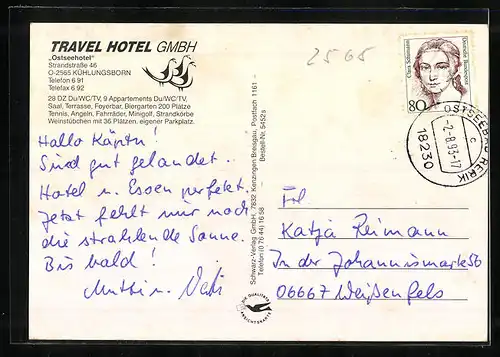 TRAVEL HOTEL GMBH
„Ostseehotel"
Strandstraße 46
O-2565 KÜHLUNGSBORN
Telefon 6 91
Telefax 6 92
28 DZ Du/WC/TV, 9 Appartements Du/WC/TV,
Saal, Terrasse, Foyerbar, Biergarten 200 Plätze
Tennis, Angeln, Fahrräder, Minigolf, Strandkörbe
Weinstübchen mit 36 Plätzen, eigener Parkplatz.
2565
Clara Schumann
Deutsche Bundespost
80
OSTSEEBAD RERIK
-2.-8.93-17
c
18230
Hallo Käpt'n!
Sind gut gelandet.
Hotel u. Essen perfekt.
Jetzt fehlt nur noch
die strahlende Sonne.
Bis bald!
Mutti u. Vati
Schwarz-Verlag GmbH, 7832 Kenzingen/Breisgau, Postfach 1161 –
Telefon (0 76 44) 16 58
Bestell-Nr. 5452a
DIE QUALITÄTS
ANSICHTSKARTE
Frl
Katja Reimann
In der Johannismark 56
06667 Weißenfels